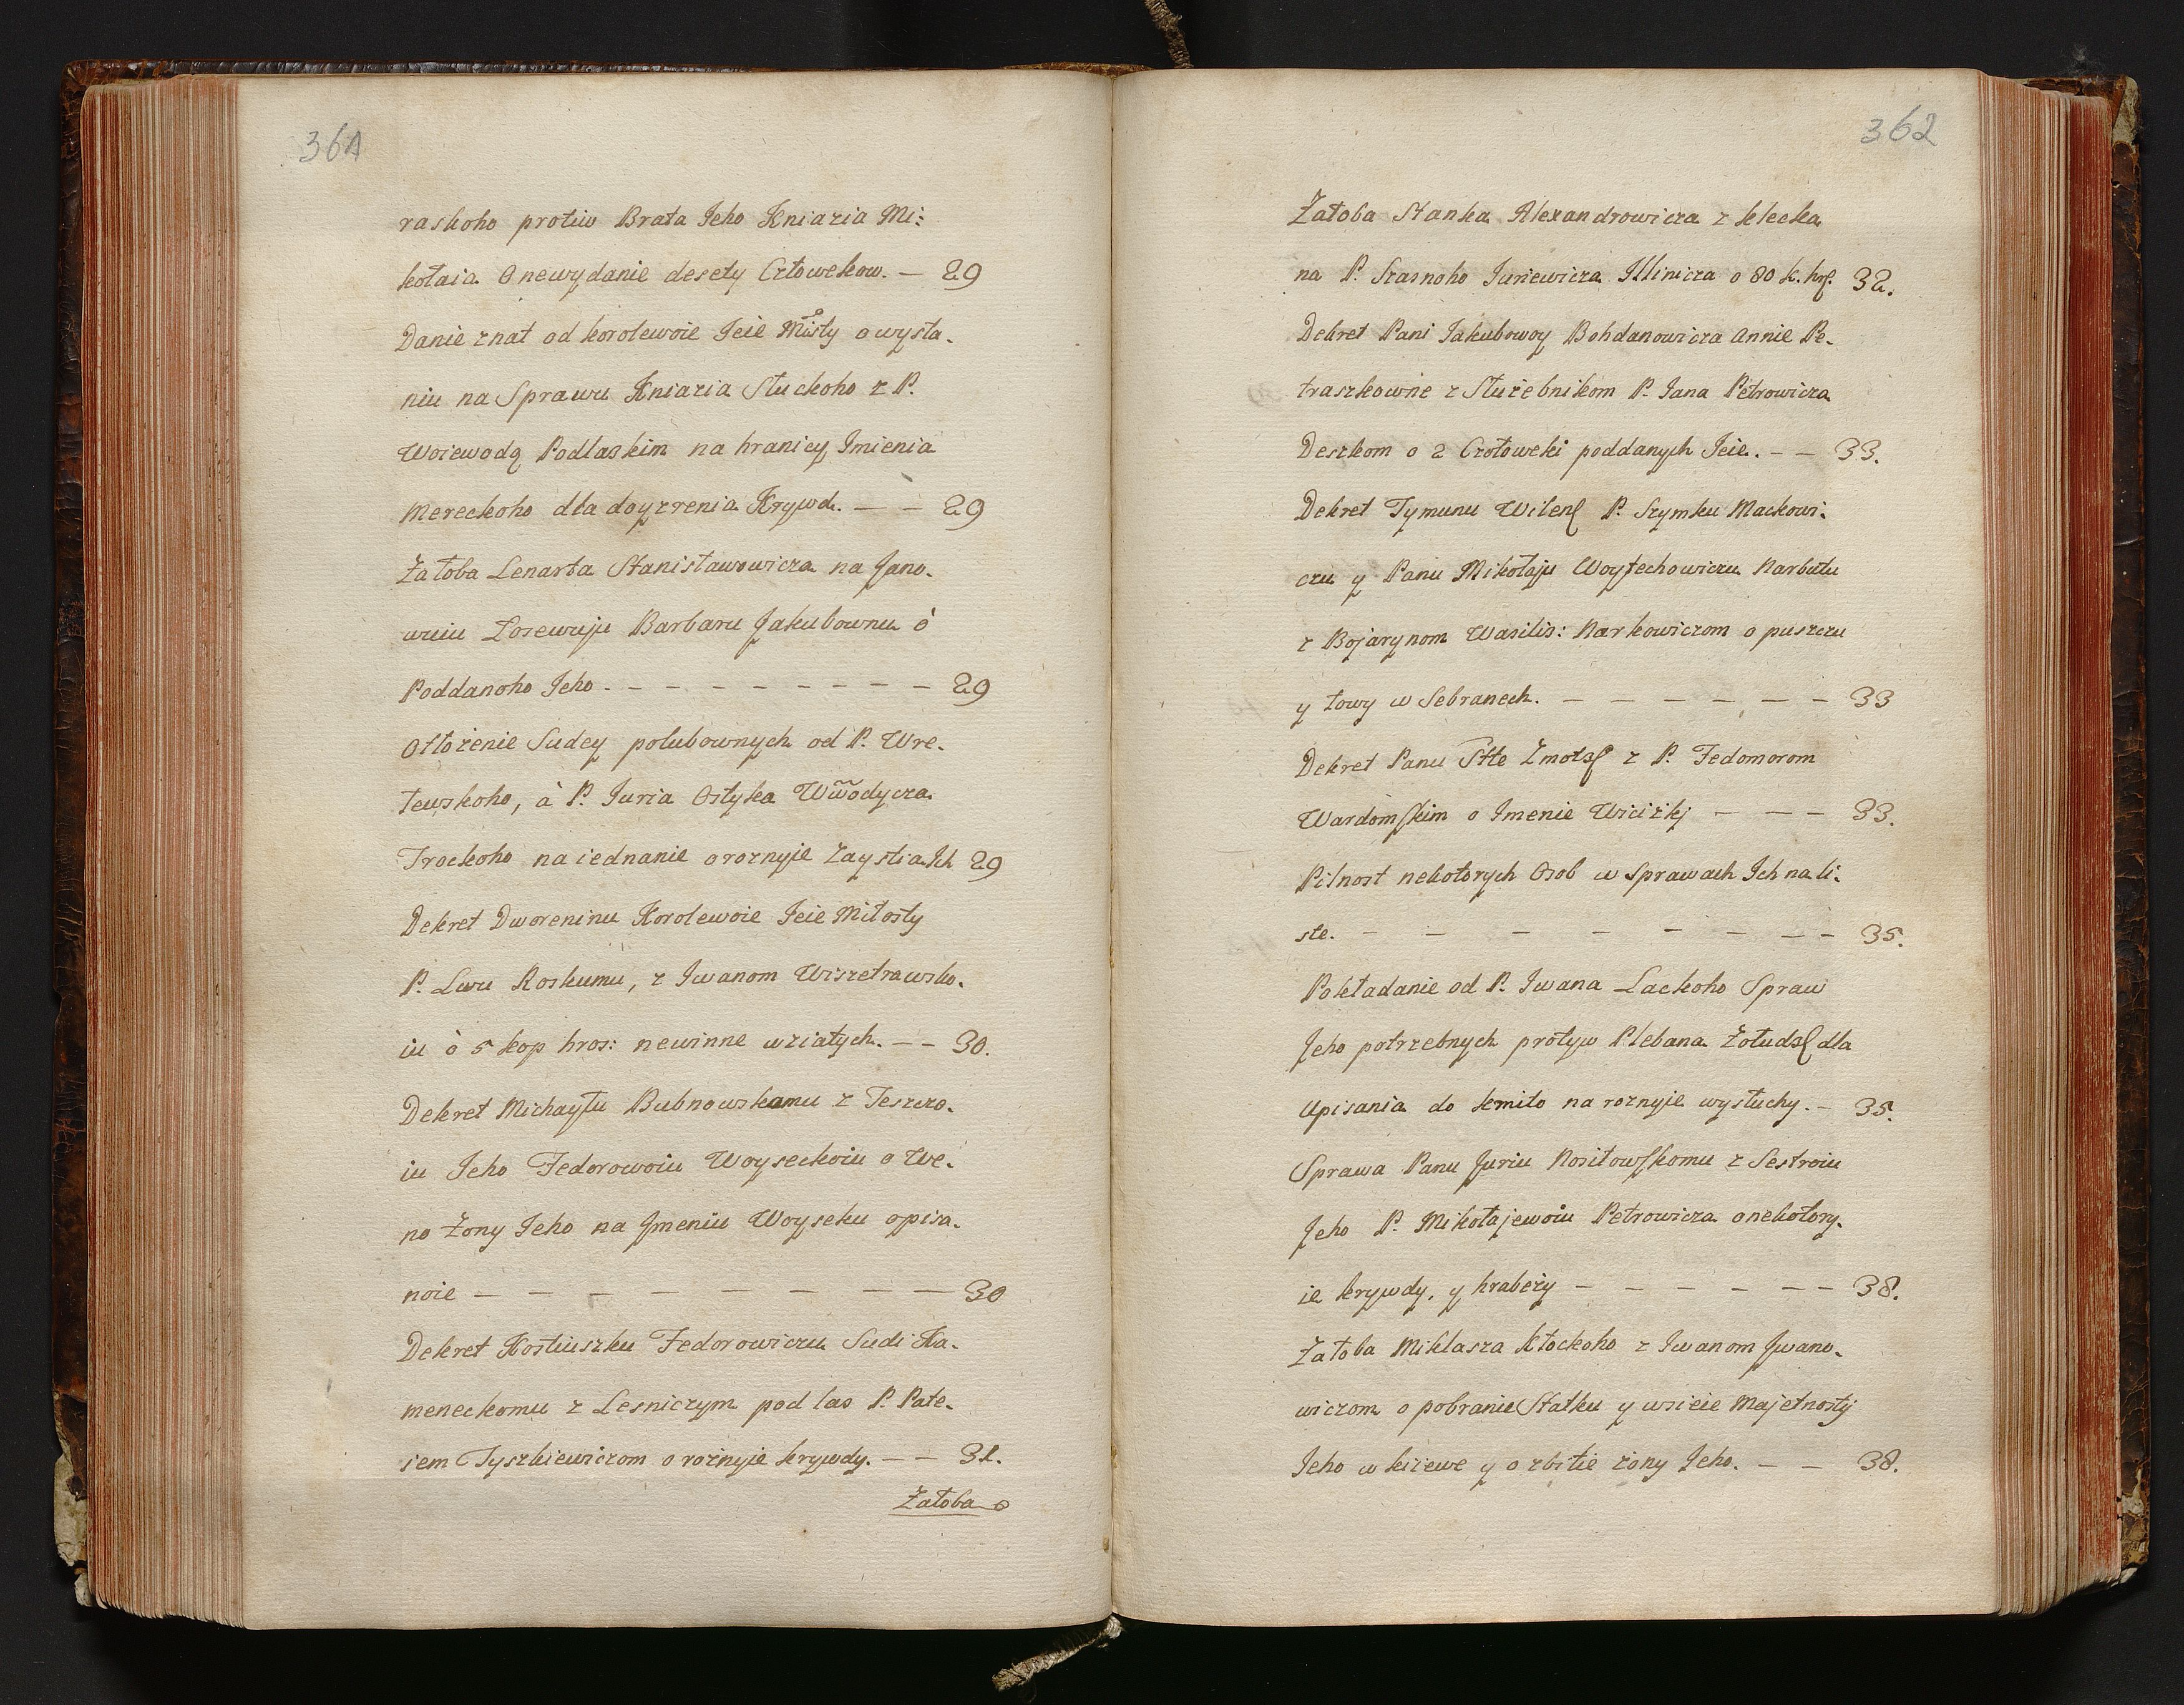 361
raskoho protiw Brata Jeho Kniazia Mi:
kołaia O newydanie desety Człowekow. — 29
Danie znat od korolewoie Jeie Miłsty o wysła.
niu na Sprawu Kniazia Słuckoho z P.
Woiewodą Podlaskim na hranicy Jmienia
Mereckoho dla doyzrenia Krywd. — — 29
Załoba Lenarta Stanisławowicza na Jano.
wuiu Łosewuju Barbaru Jakubownu ò
Poddanoho Jeho. — — — — — — — — — 29
Otłożenie Sudcy połubownych od P. Wre.
tewskoho, à P. Juria Ostyka Wwodycza
Trockoho na iednanie o roznyie Zaystia Ich 29
Dekret Dworeninu Korolewoie Jeie Miłosty
P. Lwu Roskumu, z Jwanom Wiszetrawsko.
iu ò 5 kop hros: newinne wziatych. — — 30.
Dekret Michayłu Bubnowskomu z Teszczo.
iu Jeho Fedorowoiu Woyseckoiu o We.
no Żony Jeho na Jmeniu Woyseku opisa.
noie — — — — — — — — 30
Dekret Kostiuszku Fedorowiczu Sudi Ka.
meneckomu z Lesniczym podlas P. Pate.
sem Tyszkiewiczom o rożnyie krywdy. — — 31.
Załoba
362
Załoba Stanka Alexandrowicza z klecka
na P. Stasnoho Juriewicza Jllinicza o 80 k. hr. 32.
Dekret Pani Jakubowoy Bohdanowicza Annie Pe.
traszkownie z Służebnikom P. Jana Petrowicza
Deszkom o 2 Czołoweki poddanych Jeie. — — 33.
Dekret Tymunu Wilens P. Szymku Mackowi.
czu y Panu Mikołaju Woytechowiczu Narbutu
z Bojarynom Wasilis: Narkowiczom o puszczu
y łowy w Sebranech. — — — — — — 33
Dekret Panu Stte Żmots z P. Fedomorom
Wardomskim o Jmenie Wiciżkj — — — 33.
Pilnost nekotorych Osob w Sprawach Ich na li.
ste. — — — — — — — — 35.
Pokładanie od P. Jwana Lackoho Spraw
Jeho potrzebnych protyw Plebana Żołuds dla
Upisania do kmito na roznyie wysłuchy. — 35.
Sprawa Panu Juriu Nosiłowskomu z Sestroiu
Jeho P. Mikołajewoiu Petrowicza o nekotory.
ie krywdy, y hrabeży — — — — — — 38.
Załoba Miklasza Kłockoho z Jwanom Jwano.
wiczom o pobranie Statku y wsieie Majetnosty
Jeho w kiiewe y o zbitie żony Jeho. — — 38.